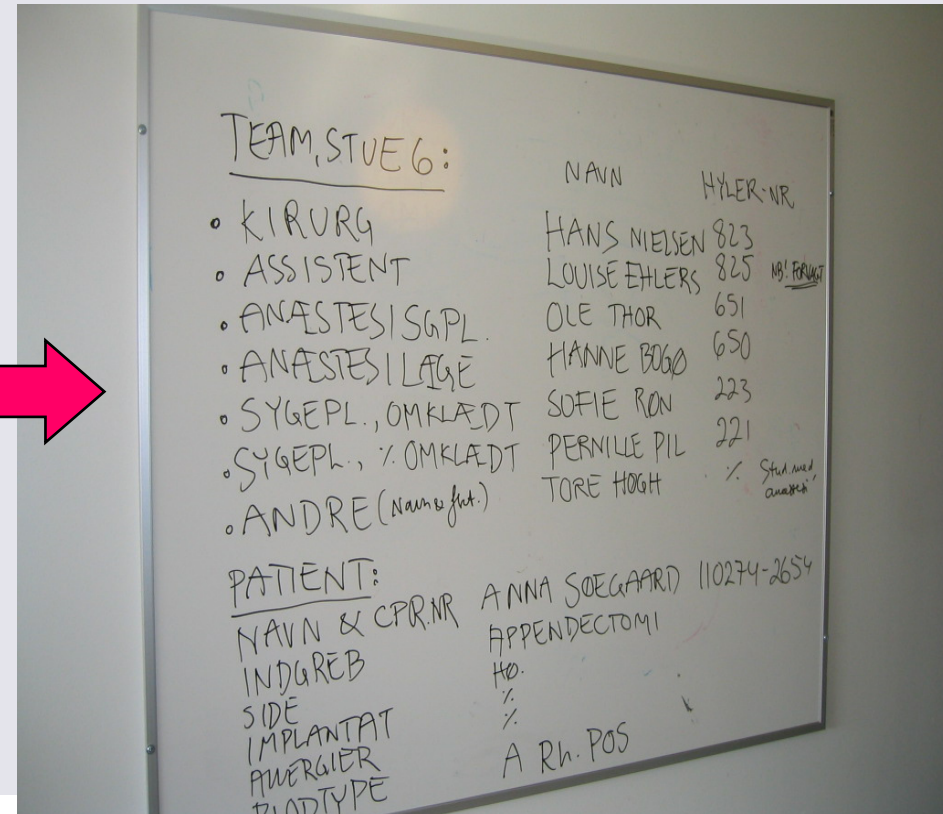 TEAM, STUE 6:
NAVN HYLER-NR
• KIRURG HANS NIELSEN 823
• ASSISTENT LOUISE EHLERS 825 NB! FORVAGT
• ANÆSTESISGPL. OLE THOR 651
• ANÆSTESILÆGE HANNE BOGØ 650
• SYGEPL., OMKLÆDT SOFIE RON 223
• SYGEPL., ٪ OMKLÆDT PERNILLE PIL 221
• ANDRE (Navn & fkt.) TORE HØGH ٪ Stud.med
PATIENT:
NAVN & CPR.NR ANNA SØEGAARD 110274-2654
INDGREB APPENDECTOMI
SIDE HØ.
IMPLANTAT ٪
ALLERGIER ٪
BLODTYPE A Rh. POS